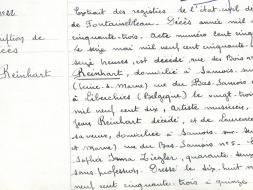 Extrait des registres de l'état civil de
de Fontainebleau. Décès année mil n
cinquante-trois. Acte numéro cent cinqua
Le seize mai mil neuf cent cinquante-
seize heures, est décédé, rue du Bois
Reinhart, domicilié à Samois-sur
(Seine-s-Marne) rue du Bas-Samois
à Liberchies (Belgique) le vingt
mil neuf cent dix, Artiste musicien,
Jean Reinhart décédé, et de Laurence
domiciliée à Samois-sur-Se
et Marne) rue du Bas-Samois n°5. E
Sophie Irma Ziegler, quarante
sans profession. Dressé le dix-huit m
neuf cent cinquante-trois à quinze
ption de
écès
Reinhart